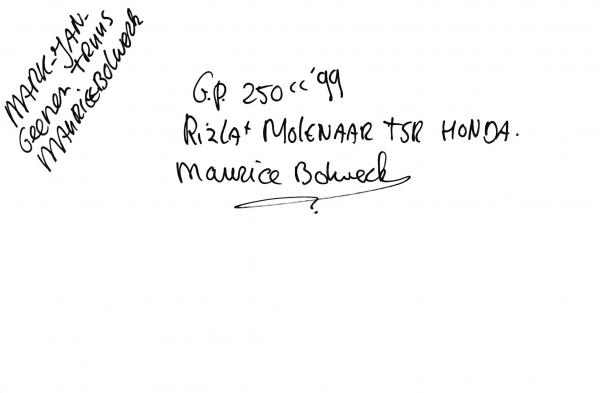 MARK-JAN-
Geenen TRUUS
MAURICE Bolwerck
G.P. 250cc '99
RIZLA+ MOLENAAR TSR HONDA.
Maurice Bolwerck
?